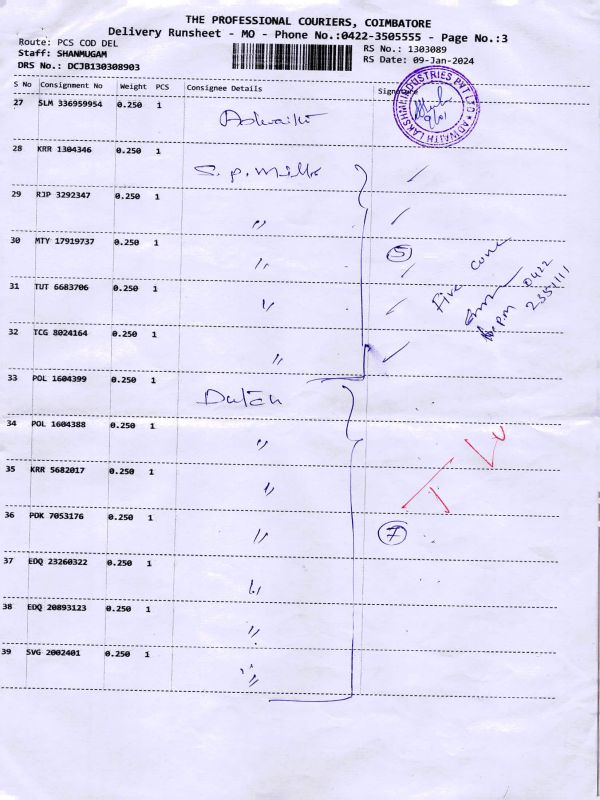 THE PROFESSIONAL COURIERS, COIMBATORE
Delivery Runsheet - MO - Phone No.:0422-3505555 - Page No.:3
Route: PCS COD DEL RS No.: 1303089
Staff: SHANMUGAM RS Date: 09-Jan-2024
DRS No.: DCJB130308903
S No Consignment No Weight PCS Consignee Details Signature
27 SLM 336959954 0.250 1 Adwaith
ADWAITH LAKSHMI INDUSTRIES PVT LTD
9/01
28 KRR 1304346 0.250 1 S. P. Mills
29 RJP 3292347 0.250 1 〃
30 MTY 17919737 0.250 1 〃 5
Five cone
0422
31 TUT 6683706 0.250 1 〃
32 TCG 8024164 0.250 1 〃
33 POL 1604399 0.250 1 Dutch
34 POL 1604388 0.250 1 〃
35 KRR 5682017 0.250 1 〃
36 PDK 7053176 0.250 1 〃 7
37 EDQ 23260322 0.250 1 〃
38 EDQ 20893123 0.250 1 〃
39 SVG 2002401 0.250 1 〃